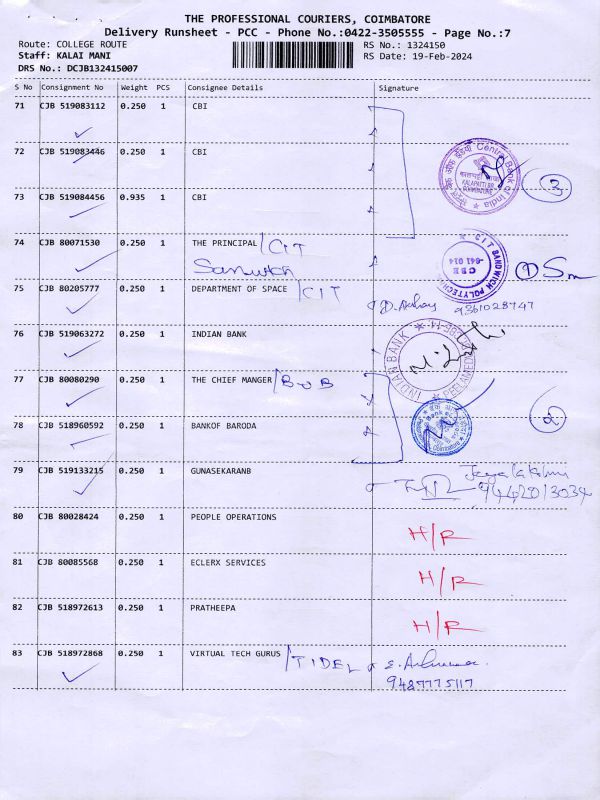 THE PROFESSIONAL COURIERS, COIMBATORE
Delivery Runsheet - PCC - Phone No.:0422-3505555 - Page No.:7
Route: COLLEGE ROUTE RS No.: 1324150
Staff: KALAI MANI RS Date: 19-Feb-2024
DRS No.: DCJB132415007
S No Consignment No Weight PCS Consignee Details Signature
71 CJB 519083112 0.250 1 CBI
72 CJB 519083446 0.250 1 CBI
Central Bank of India
KALAPATTI BR
COIMBATORE
3
73 CJB 519084456 0.935 1 CBI
74 CJB 80071530 0.250 1 THE PRINCIPAL /CIT
Sandwich
CIT SANDWICH POLYTECHNIC
CBE
-641 014
1
75 CJB 80205777 0.250 1 DEPARTMENT OF SPACE /CIT
9361028747
76 CJB 519063272 0.250 1 INDIAN BANK
INDIAN BANK
77 CJB 80080290 0.250 1 THE CHIEF MANGER /BOB
2
78 CJB 518960592 0.250 1 BANKOF BARODA
79 CJB 519133215 0.250 1 GUNASEKARANB
Jeyalakshmi
9442013034
80 CJB 80028424 0.250 1 PEOPLE OPERATIONS H/R
81 CJB 80085568 0.250 1 ECLERX SERVICES H/R
82 CJB 518972613 0.250 1 PRATHEEPA H/R
83 CJB 518972868 0.250 1 VIRTUAL TECH GURUS /TIDEL
9487775117